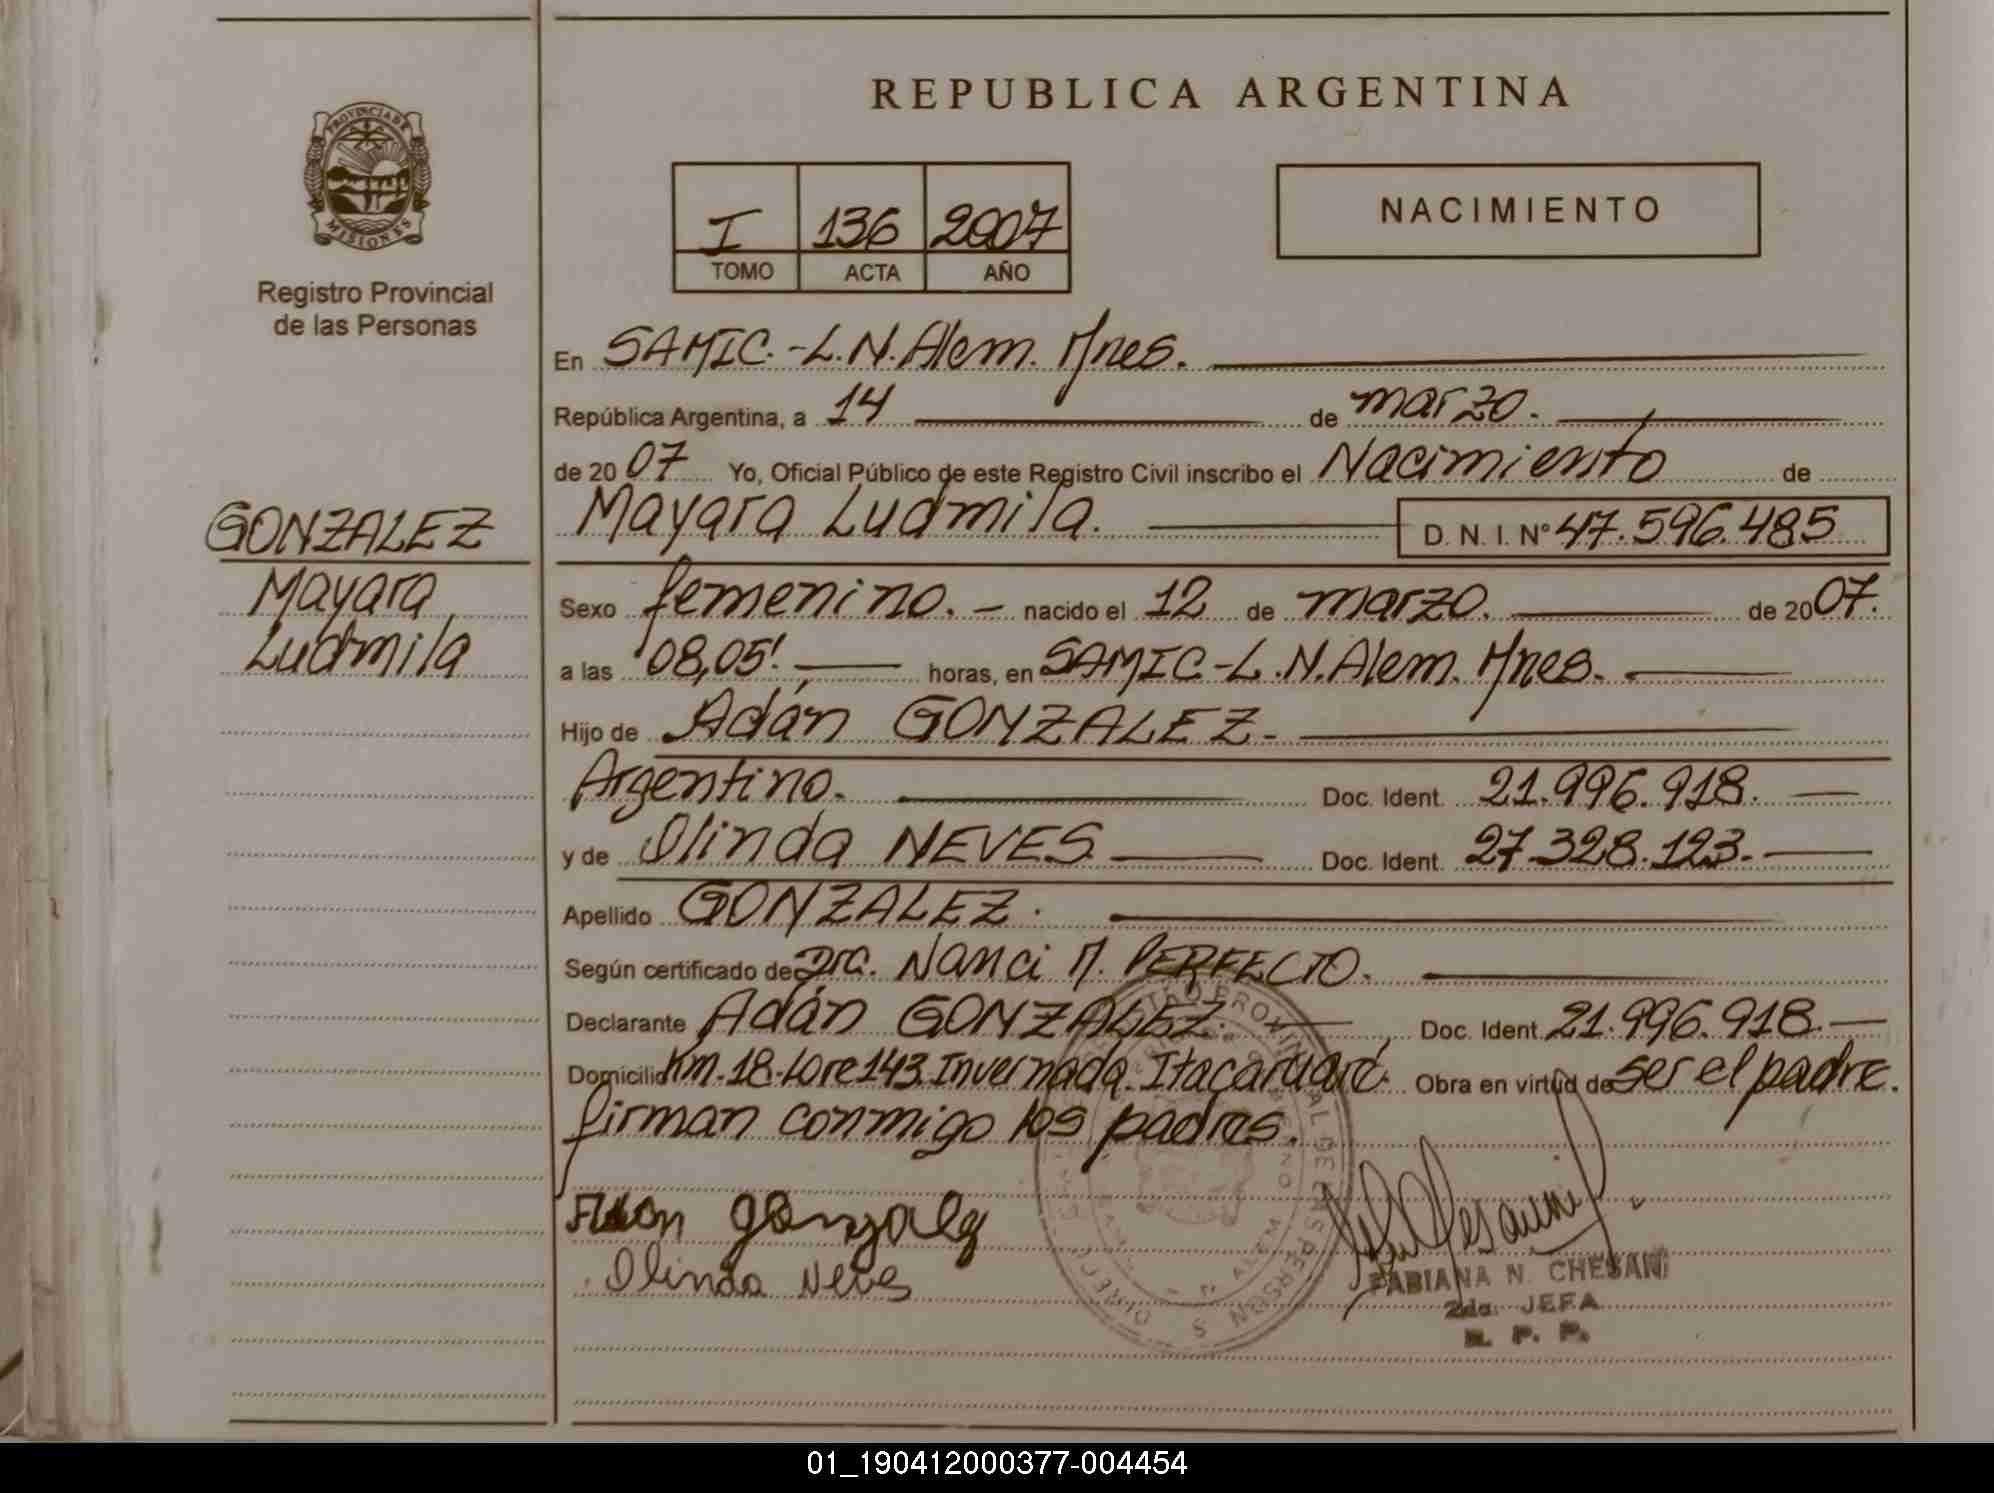 REPUBLICA ARGENTINA
PROVINCIA DE
MISIONES
Registro Provincial
de las Personas
I 136 2007
TOMO ACTA AÑO
NACIMIENTO
En SAMIC.-L.N.Alem. Mnes.
República Argentina, a 14 de marzo.
de 2007 Yo, Oficial Público de este Registro Civil inscribo el Nacimiento de
Mayara Ludmila. D. N. I. Nº 47.596.485
GONZALEZ
Mayara
Ludmila
Sexo femenino. - nacido el 12 de marzo. de 2007.
a las 08,05'. horas, en SAMIC-L.N.Alem. Mnes.
Hijo de Adán GONZALEZ-
Argentino. Doc. Ident. 21.996.918.
y de Olinda NEVES Doc. Ident. 27.328.123.
Apellido GONZALEZ.
Según certificado de Dra. Nanci M. PERFECTO.
Declarante Adán GONZALEZ. Doc. Ident. 21.996.918.
Domicilio Km.18.Lote143.Invernada.Itacaruaré. Obra en virtud de ser el padre.
firman conmigo los padres.
gonzalez
Olinda Neves
FABIANA N. CHESANI
2da. JEFA
R. P. P.
01_190412000377-004454